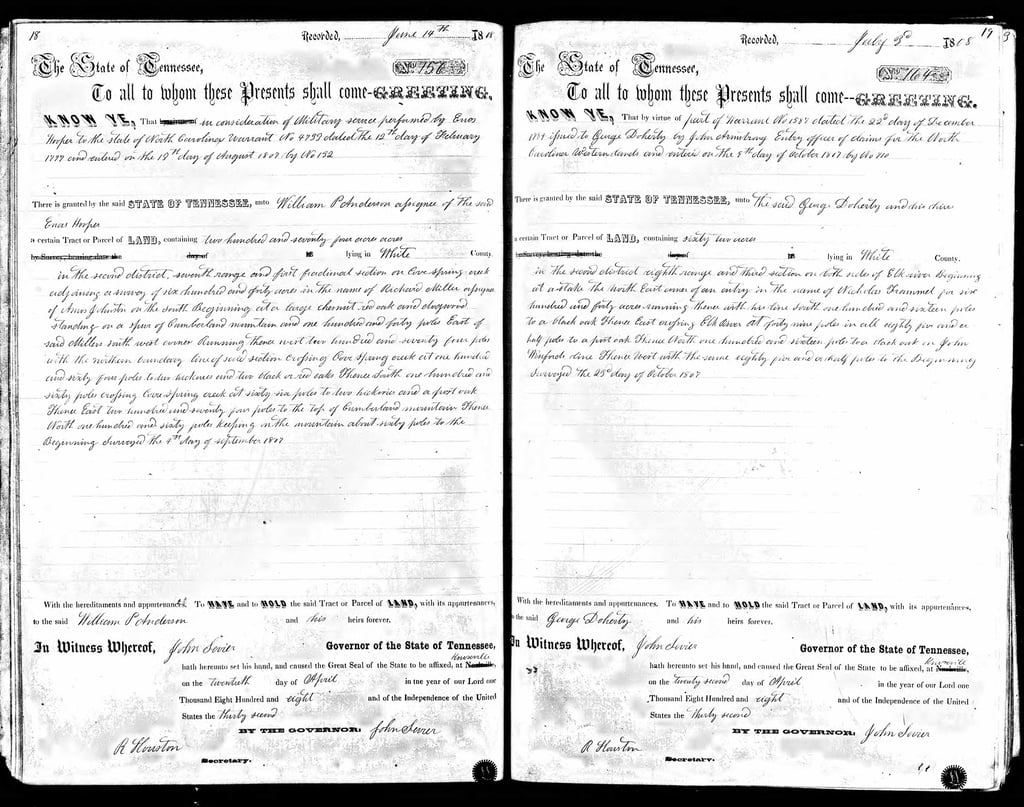 18
Recorded, June 14th 1808
The State of Tennessee,
No. 156
To all to whom these Presents shall come-GREETING.
KNOW YE, That in consideration of Military service performed by Enos
Hooper to the state of North Carolina Warrant No 4792 dated the 12th day of February
1797 and entered on the 19th day of August 1807 by No 152
There is granted by the said STATE OF TENNESSEE, unto William P Anderson assignee of the said
Enos Hooper
a certain Tract or Parcel of LAND, containing two hundred and seventy four acres acres
by Survey, bearing date the day of 18 lying in White County.
in the second district, seventh range and first fractional section on Cove spring creek
adjoining a survey of six hundred and forty acres in the name of Richard Miller assignee
of Amos Johnston on the south Beginning at a large chesnut red oak and dogwood
standing on a spur of Cumberland mountain and one hundred and forty poles East of
said Millers south west corner Running thence west two hundred and seventy four poles
with the northern boundary line of said section crossing Cove spring creek at one hundred
and sixty four poles to two hickories and two black or red oaks Thence South one hundred and
sixty poles crossing Cove spring creek at sixty six poles to two hickories and a post oak
Thence East two hundred and seventy four poles to the top of Cumberland mountain Thence
North one hundred and sixty poles keeping on the mountain about sixty poles to the
Beginning Surveyed the 9th day of september 1807
With the hereditaments and appurtenances. To HAVE and to HOLD the said Tract or Parcel of LAND, with its appurtenances,
to the said William P Anderson and his heirs forever.
In Witness Whereof, John Sevier Governor of the State of Tennessee,
Knoxville
hath hereunto set his hand, and caused the Great Seal of the State to be affixed, at Nashville,
on the twentieth day of April in the year of our Lord one
Thousand Eight Hundred and eight and of the Independence of the United
States the thirty second
BY THE GOVERNOR: John Sevier
R Houston
Secretary.
19
3
Recorded, July 3d 1808
The State of Tennessee,
No. 164
To all to whom these Presents shall come--GREETING.
KNOW YE, That by virtue of part of Warrant No 1587 dated the 22d day of December
issued to George Doherty by John Armstrong Entry officer of claims for the North
Carolina Western lands and entered on the 9th day of october 1807 by No 110
There is granted by the said STATE OF TENNESSEE, unto the said George Doherty and his heirs
a certain Tract or Parcel of LAND, containing sixty two acres
by Survey, bearing date the day of 18 lying in White County.
in the second district eighth range and third section on both sides of Elk river Beginning
at a stake the North East corner of an entry in the name of Nicholas Trammel for six
hundred and forty acres running thence with his line south one hundred and sixteen poles
to a black oak Thence East crossing Elk River at forty nine poles in all eighty five and a
half poles to a post oak Thence North one hundred and sixteen poles to a black oak in John
Winfords line Thence West with the same eighty five and a half poles to the Beginning
Surveyed the 25th day of October 1807
With the hereditaments and appurtenances. To HAVE and to HOLD the said Tract or Parcel of LAND, with its appurtenances,
to the said George Doherty and his heirs forever.
In Witness Whereof, John Sevier Governor of the State of Tennessee,
Knoxville
hath hereunto set his hand, and caused the Great Seal of the State to be affixed, at Nashville,
on the twenty second day of April in the year of our Lord one
Thousand Eight Hundred and eight and of the Independence of the United
States the thirty second
BY THE GOVERNOR: John Sevier
R Houston
Secretary.